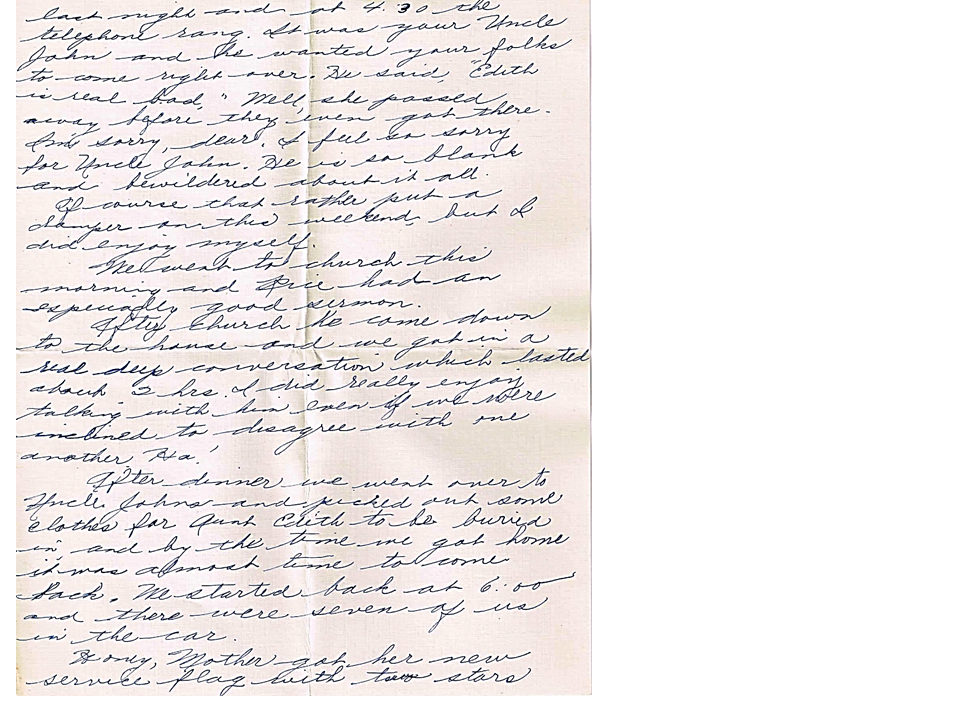 last night and at 4:30 the
telephone rang. It was your Uncle
John and he wanted your folks
to come right over. He said, "Edith
is real bad." Well, she passed
away before they even got there.
I'm sorry, dear. I feel so sorry
for Uncle John. He is so blank
and bewildered about it all.
Of course that rather put a
damper on this weekend, but I
did enjoy myself.
We went to church this
morning and Rice had an
especially good sermon.
After church he come down
to the house and we got in a
real deep conversation which lasted
about 2 hrs. I did really enjoy
talking with him even if we were
inclined to disagree with one
another. Ha!
After dinner we went over to
Uncle Johns and picked out some
clothes for Aunt Edith to be buried
in, and by the time we got home
it was almost time to come
back. We started back at 6:00
and there were seven of us
in the car.
Honey, Mother got her new
service flag with two stars